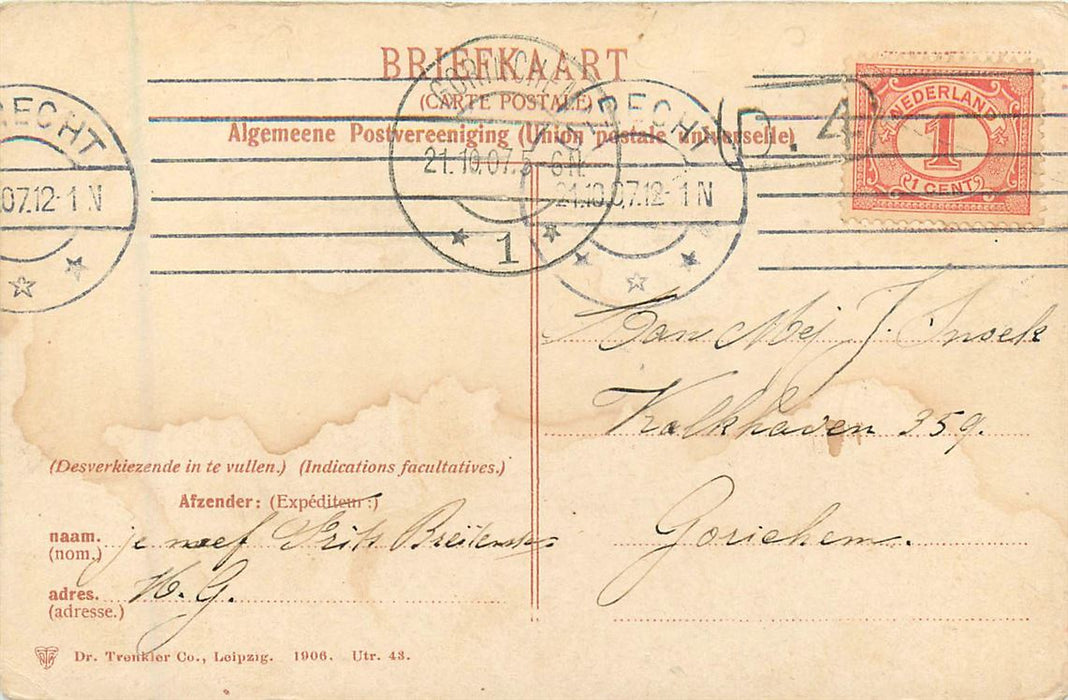 BRIEFKAART
(CARTE POSTALE)
Algemeene Postvereeniging (Union postale universelle)
RECHT
07.12-1 N
GORINCHEM
21.10.07.5-6N.
1
RECHT
21.10.07.12-1 N
D.4
NEDERLAND
1
1 CENT
Aan Mej J. Snoek
Kalkhaven 359.
Gorichem.
(Desverkiezende in te vullen.) (Indications facultatives.)
Afzender: (Expéditeur:)
naam. je neef Frits
(nom.)
adres. H. G.
(adresse.)
Dr. Trenkler Co., Leipzig. 1906. Utr. 43.